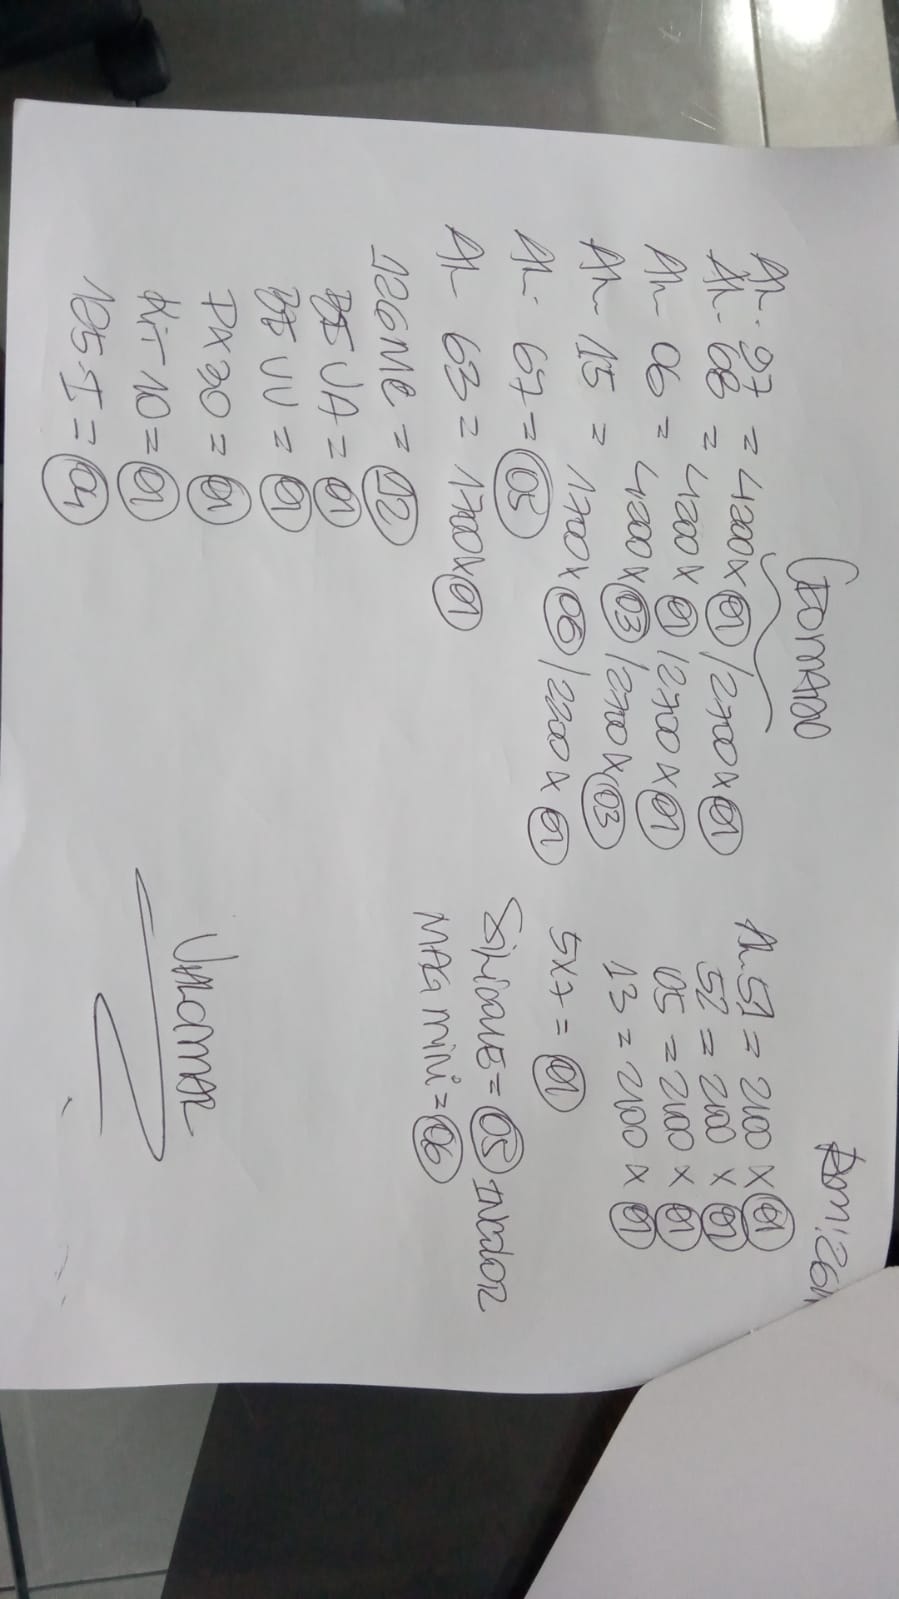 Dom: 26/
AL- 97 = 4200 x 01 / 2700 x 01
AL- 68 = 4200 x 01 / 2700 x 01
AL- 06 = 4200 x 03 / 2700 x 03
AL- 15 = 1700 x 06 / 2200 x 01
AL- 67 = 03
AL- 63 = 1700 x 01
226MR = 12
UA = 01
UV = 01
PX30 = 01
Kit 10 = 01
125-I = 04
AL-51 = 2100 x 01
52 = 2100 x 01
05 = 2100 x 01
13 = 2100 x 01
5x7 = 01
Silicone = 05 Incolor
MAG Mini = 06